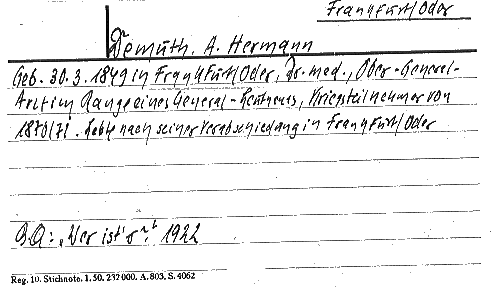 Frankfurt/Oder
Demuth. A. Hermann
Geb. 30. 3. 1849 in Frankfurt/Oder, Dr. med., Ober-General-
Arzt im Range eines General-Leutnants, Kriegsteilnehmer von
1870/71. Lebte nach seiner Verabschiedung in Frankfurt/Oder
BQ: „Wer ist's?" 1922
Reg. 10. Stichnote. 1. 50. 232000. A. 803. S. 4062